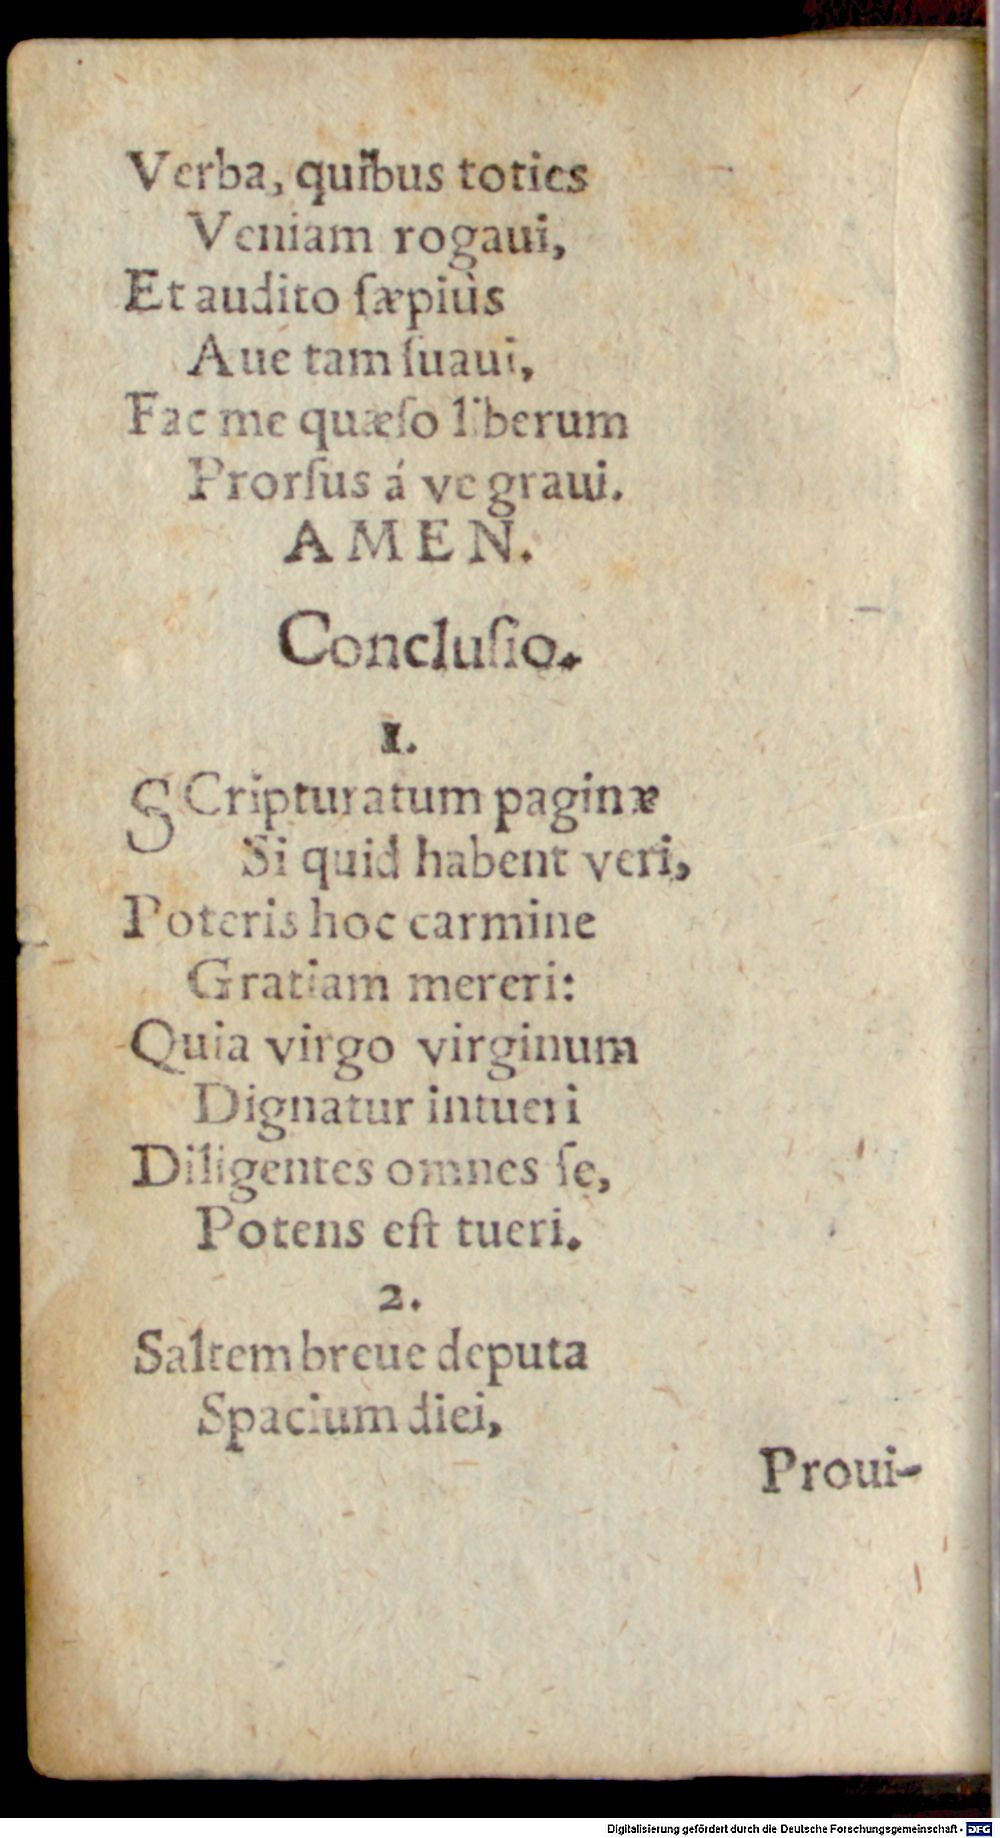 Verba, quibus toties
Veniam rogaui,
Et audito ſæpiùs
Aue tam ſuaui,
Fac me quæſo liberum
Prorſus á ve graui.
AMEN.
Concluſio.
1.
SCripturatum paginæ
Si quid habent veri,
Poteris hoc carmine
Gratiam mereri:
Quia virgo virginum
Dignatur intueri
Diligentes omnes ſe,
Potens eſt tueri.
2.
Saltem breue deputa
Spacium diei,
Proui-
Digitalisierung gefördert durch die Deutsche Forschungsgemeinschaft - DFG